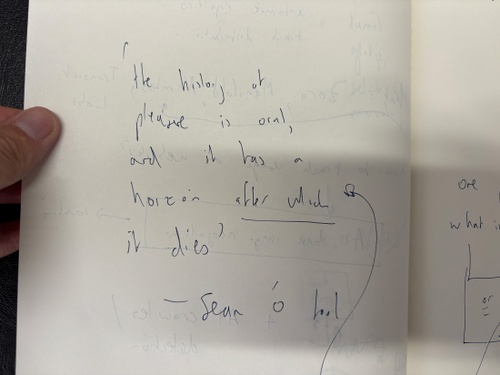 'the history of
pleasure is oral,
and it has a
horizon after which
it dies'
— Sean Ó
are
what i
or